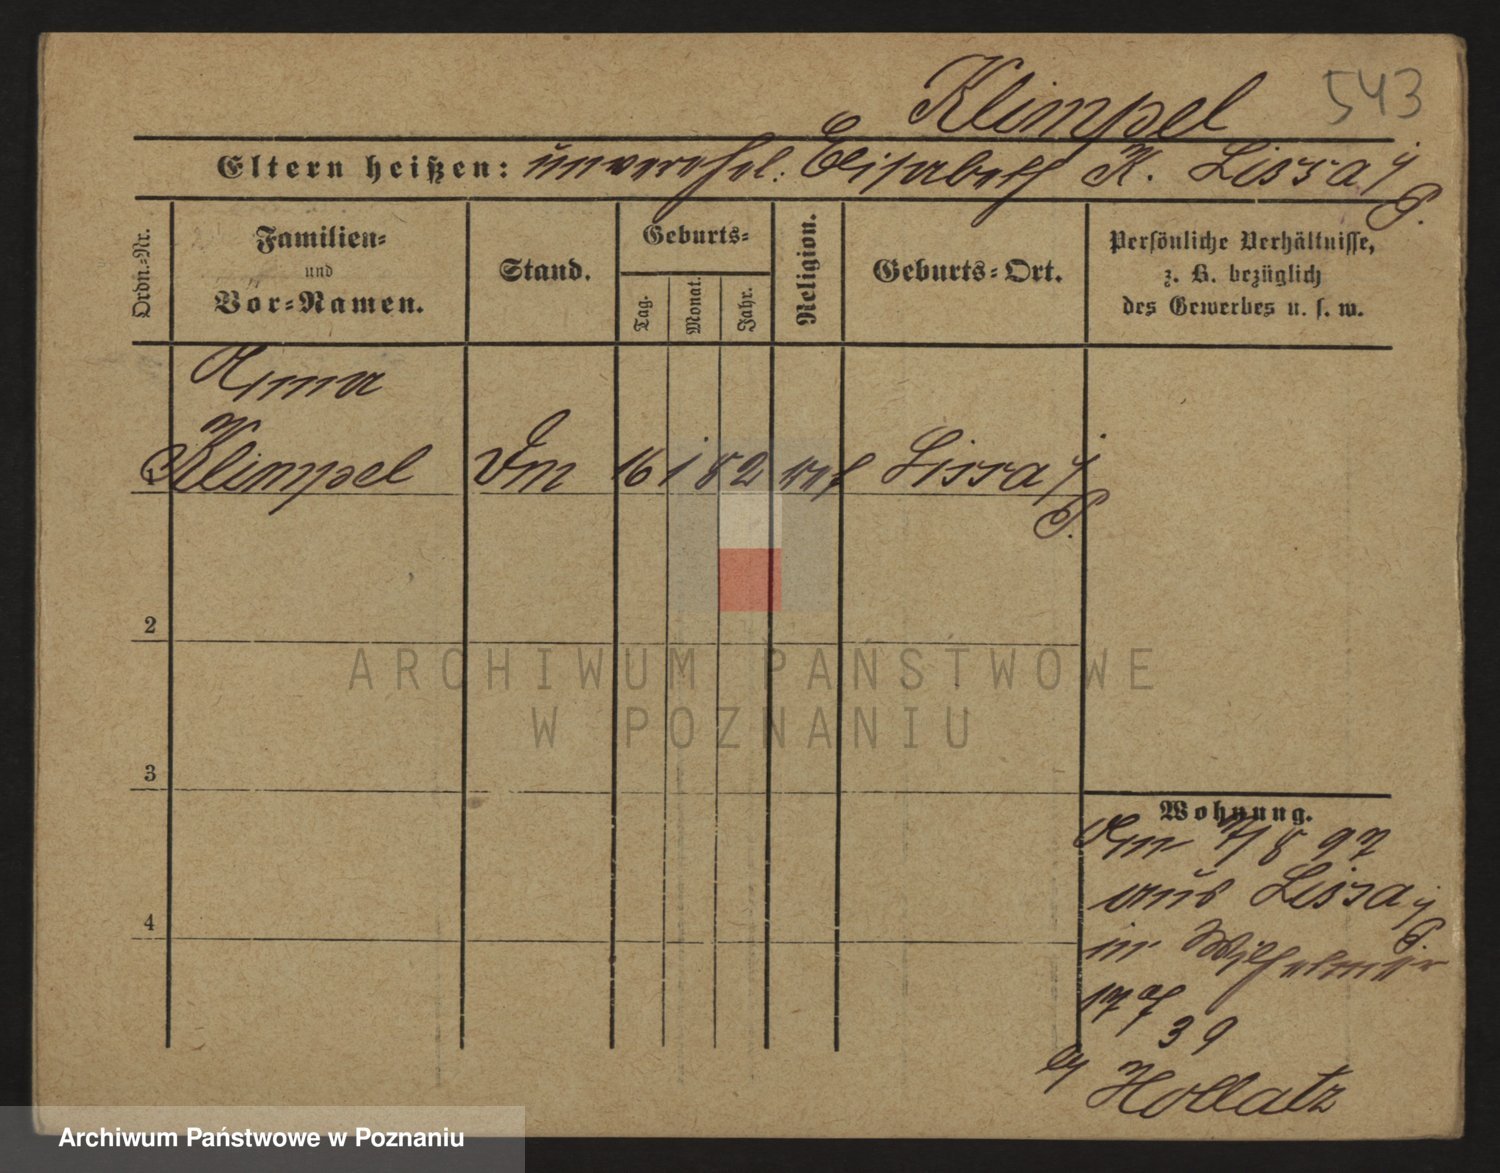 Klimpel 543
Eltern heißen: unverehel. Elisabeth K. Lissa i/P.
Ordn.-Nr.
Familien- und Vor-Namen.
Stand.
Geburts-
Tag.
Monat.
Jahr.
Religion.
Geburts-Ort.
Persönliche Verhältnisse,
z. B. bezüglich
des Gewerbes u. s. w.
Anna
1 Klimpel 16 1 82 Lissa i/P.
2
3
4
Wohnung.
7/8 97
aus Lissa i/P.
in
39
Hollatz
ARCHIWUM PAŃSTWOWE
W POZNANIU
Archiwum Państwowe w Poznaniu